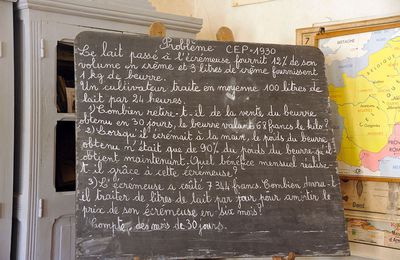 Problème CEP-1930
Le lait passé à l'écrémeuse fournit 12% de son
volume en crème et 3 litres de crème fournissent
1 kg de beurre.
Un cultivateur traite en moyenne 100 litres de
lait par 24 heures.
1) Combien retire-t-il de la vente du beurre
obtenu en 30 jours, le beurre valant 67 francs le kilo?
2) Lorsqu'il écrémait à la main, le poids du beurre
obtenu n'était que de 90% du poids du beurre qu'il
obtient maintenant. Quel bénéfice mensuel réalise-
t-il grâce à cette écrémeuse?
3) L'écrémeuse a coûté 7 344 francs. Combien devra-t-
il traiter de litres de lait par jour pour amortir le
prix de son écrémeuse en six mois?
Compte des mois de 30 jours.
BRETAGNE